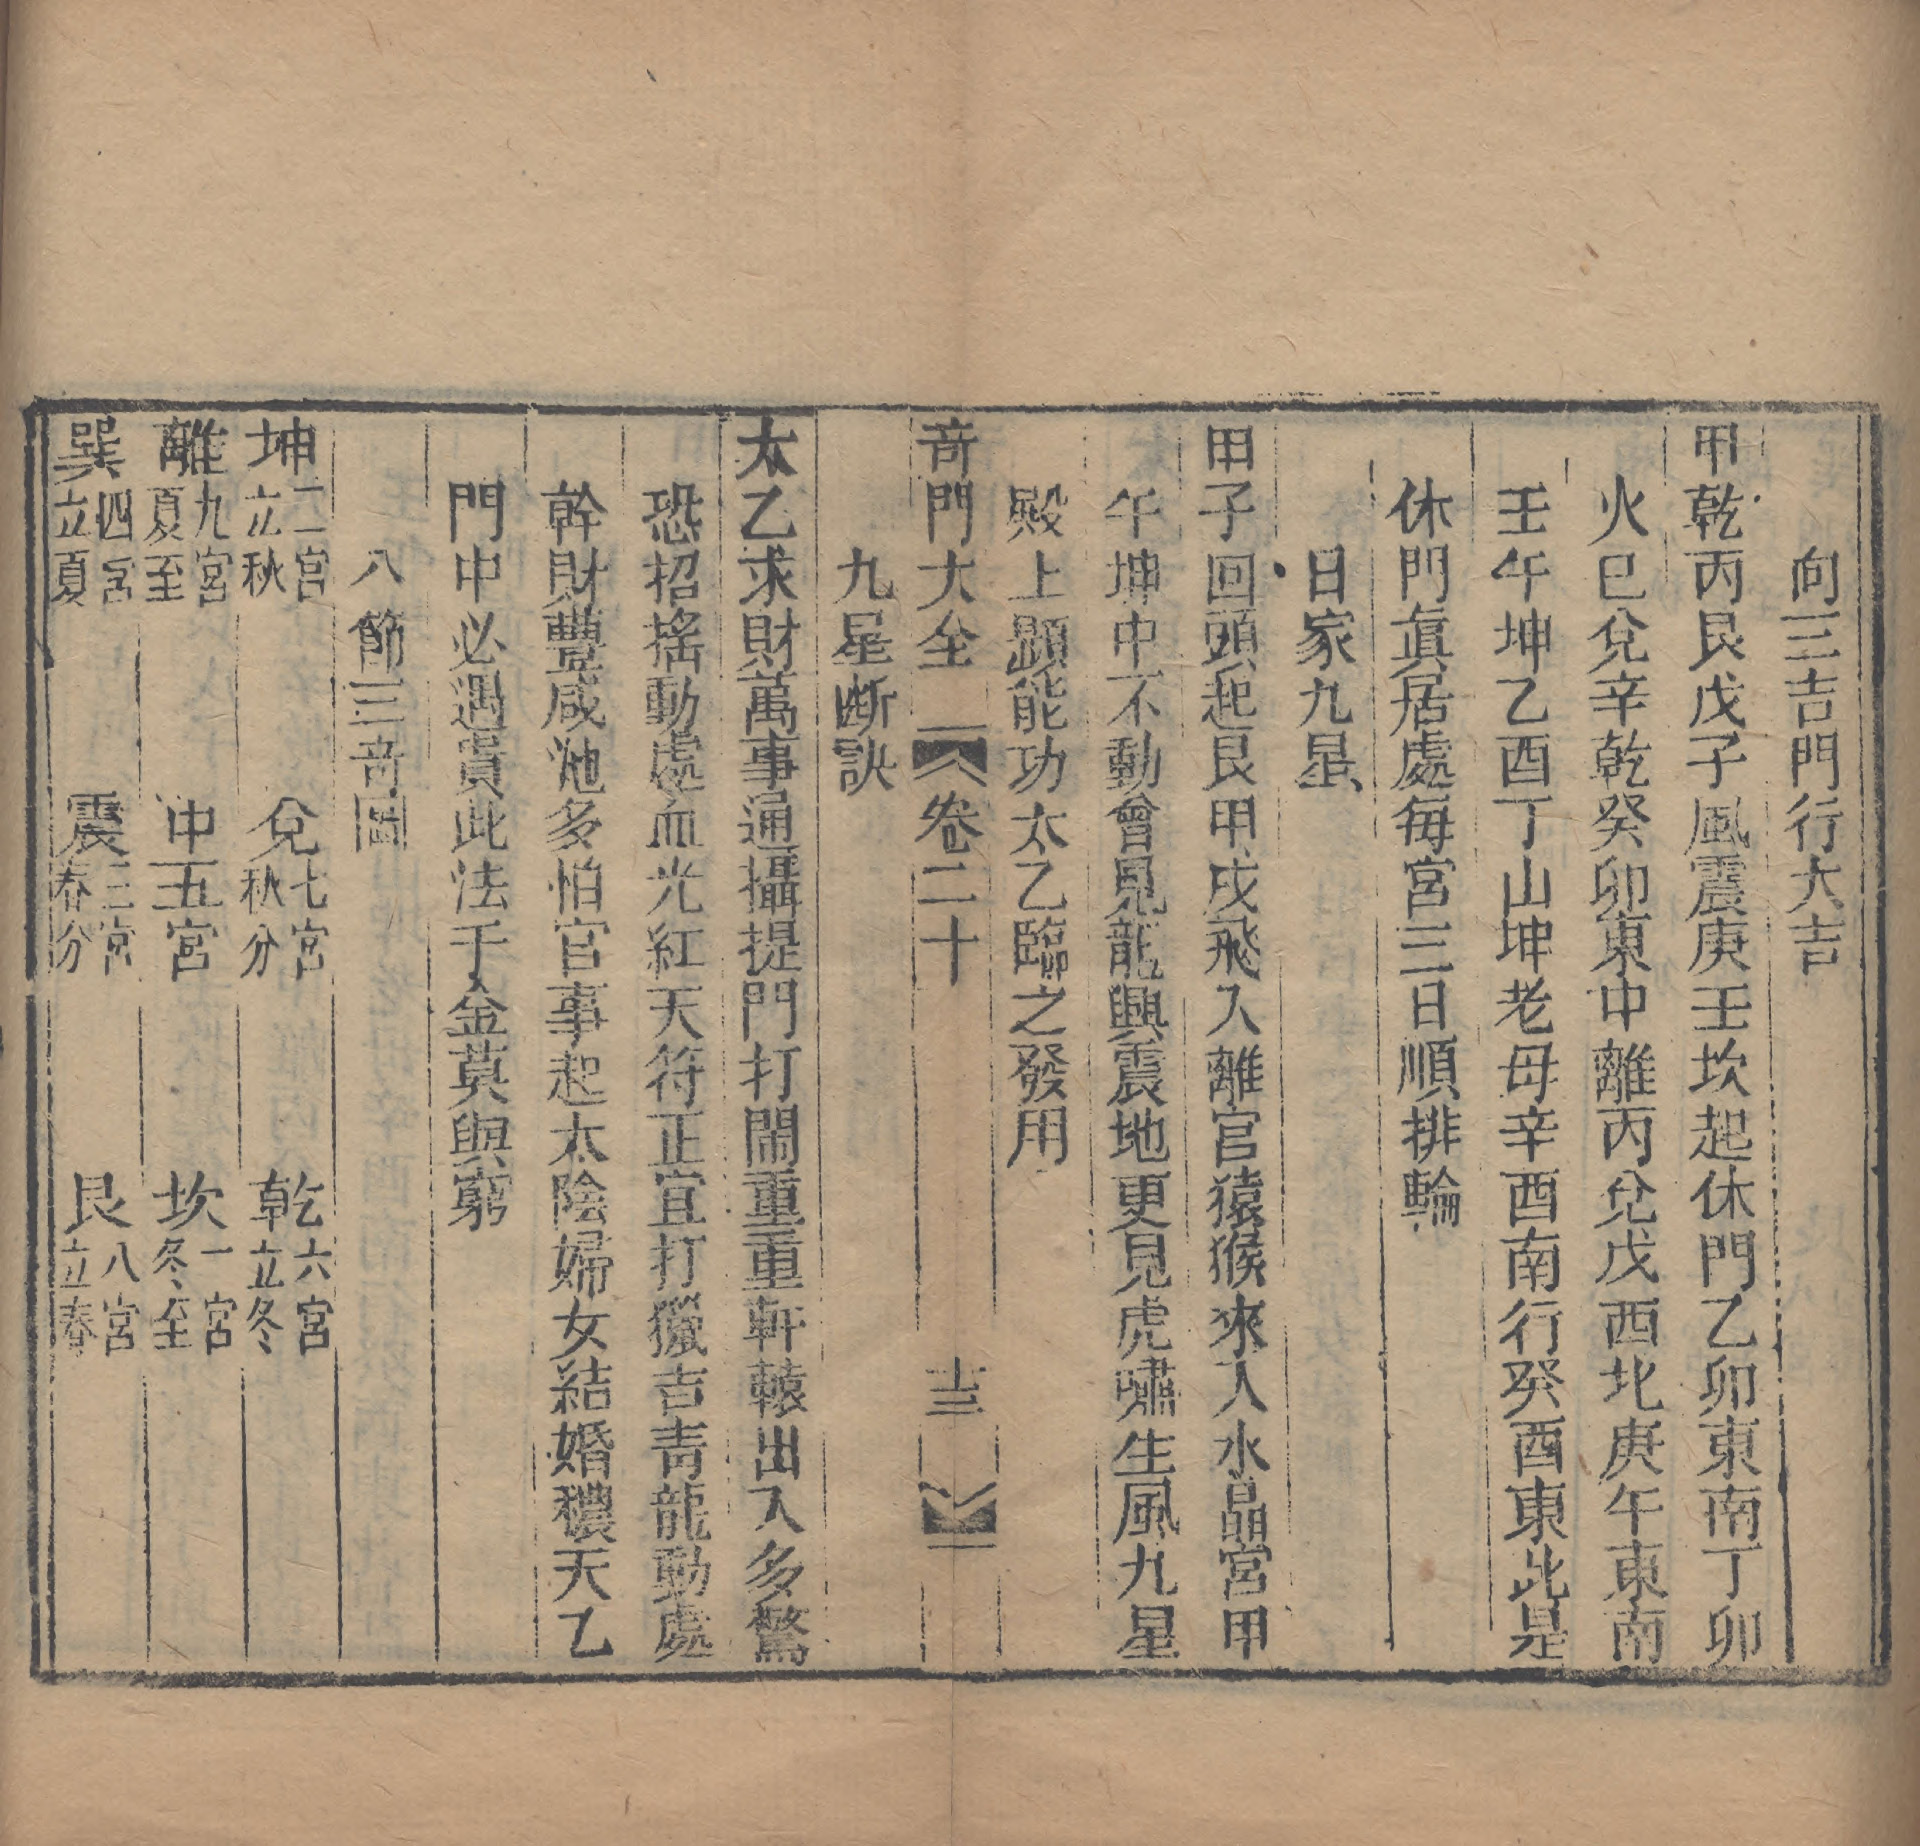 向三吉門行大吉
甲乾丙艮戊子風震庚壬坎起休門乙卯東南丁卯
火巳兌辛乾癸卯東中離丙兌戊西北庚午東南
壬午坤乙酉丁山坤老母辛酉南行癸酉東此是
休門眞居處每宮三日順排輪
日家九星
甲子回頭起艮甲戌飛入離宮猿猴來入水晶宮甲
午坤中不動曾見龍興震地更見虎嘯生風九星
殿上顯能功太乙臨之發用
奇門大全 卷二十 十三
九星断訣
太乙求財萬事通攝提門打鬧重重軒轅出入多驚
恐招搖動處血光紅天符正宜打獵吉青龍動處
幹財豐咸池多怕官事起太陰婦女結婚穠天乙
門中必遇貴此法千金莫與窮
八節三奇圖
坤二宮立秋 兌七宮秋分 乾六宮立冬
離九宮夏至 中五宮 坎一宮冬至
巽四宮立夏 震三宮春分 艮八宮立春